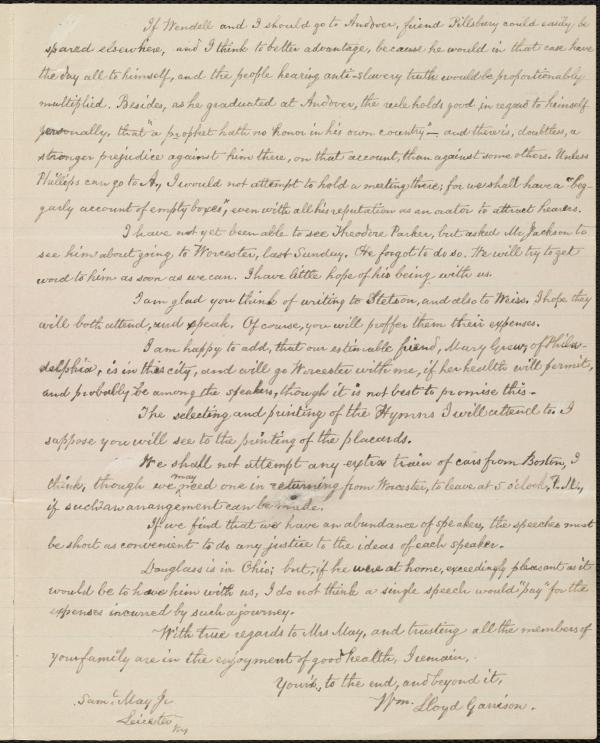 If Wendell and I should go to Andover, friend Pillsbury could easily be
spared elsewhere, and I think to better advantage, because he would in that case have
the day all to himself, and the people hearing anti-slavery truth would be proportionably
multiplied. Besides, as he graduated at Andover, the rule holds good in regard to himself
personally, that "a prophet hath no honor in his own country"— and there is, doubtless, a
stronger prejudice against him there, on that account, than against some others. Unless
Phillips can go to A., I would not attempt to hold a meeting there; for we shall have a "beg-
garly account of empty boxes," even with all his reputation as an orator to attract hearers.
I have not yet been able to see Theodore Parker, but asked Mr. Jackson to
see him about going to Worcester, last Sunday. He forgot to do so. We will try to get
word to him as soon as we can. I have little hope of his being with us.
I am glad you think of writing to Stetson, and also to Weiss. I hope they
will both attend, and speak. Of course, you will proffer them their expenses.
I am happy to add, that our estimable friend, Mary Grew, of Phila-
delphia, is in this city, and will go Worcester with me, if her health will permit,
and probably be among the speakers, though it is not best to promise this.
The selecting and printing of the Hymns I will attend to. I
suppose you will see to the printing of the placards.
We shall not attempt any extra train of cars from Boston, I
think, though we may need one in returning from Worcester, to leave at 5 o'clock, P. M.,
if such an arrangement can be made.
If we find that we have an abundance of speakers, the speeches must
be short as convenient to do any justice to the ideas of each speaker.
Douglass is in Ohio; but, if he were at home, exceedingly pleasant as it
would be to have him with us, I do not think a single speech would "pay" for the
expenses incurred by such a journey.
With true regards to Mrs May, and trusting all the members of
your family are in the enjoyment of good health, I remain,
Yours, to the end, and beyond it,
Wm. Lloyd Garrison.
Saml. May Jr
Leicester